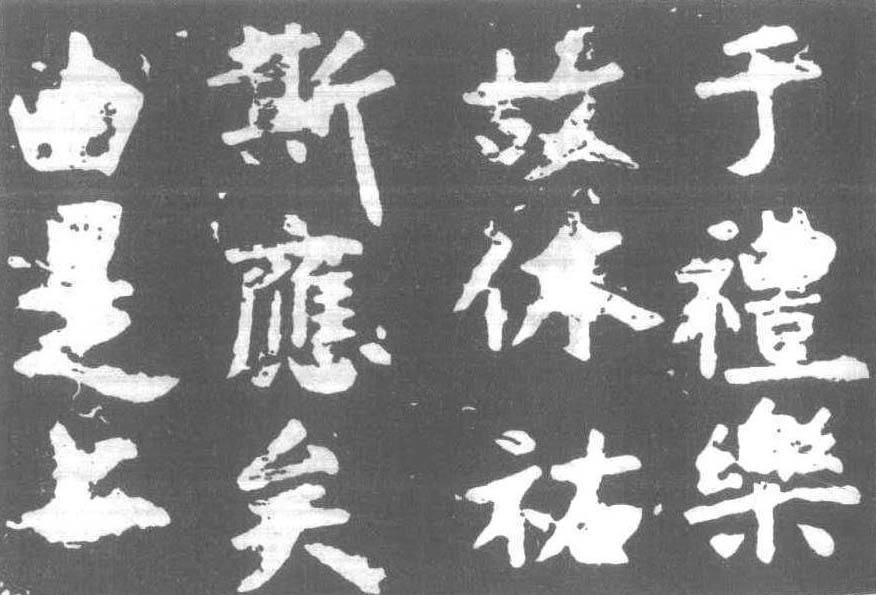 于禮樂
故休祐
斯應矣
由是上